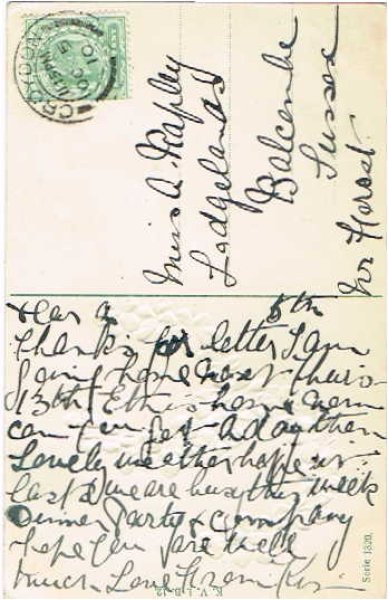 CROYDON
11.45 PM
OC 5
10
Miss A Rapley
Lodgelands
Balcombe
Sussex
Nr Forest
Dear A 5th
Thanks for letter I am
going home next Thurs
13th Ethis home now
can you get a day then
Lovely weather hope it
lasts we are busy this week
Dinner Party & company
hope you are well
much Love from
K.V.i.B. 12
Serie 1320.